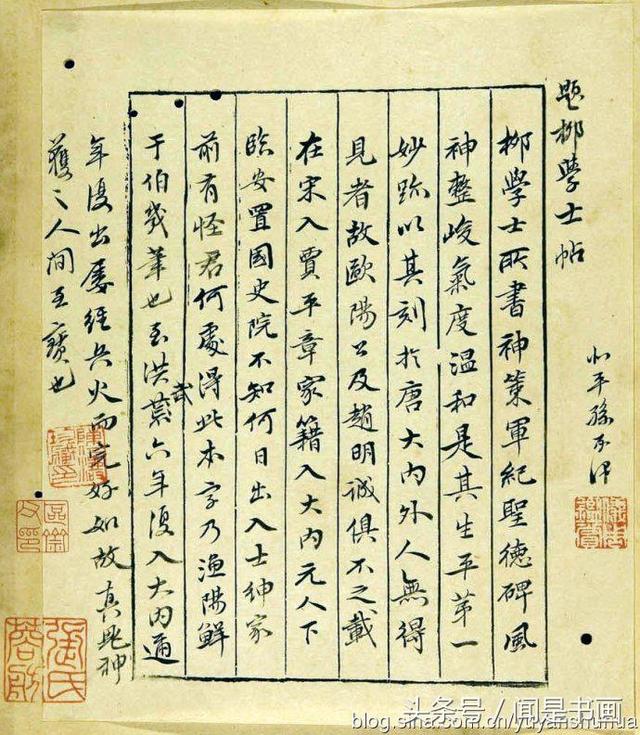 題柳學士帖
北平孫承澤
柳學士所書神策軍紀聖德碑風
神整峻氣度溫和是其生平第一
妙跡以其刻於唐大內外人無得
見者故歐陽公及趙明誠俱不之載
在宋入賈平章家籍入大內元人下
臨安置國史院不知何日出入士紳家
前有怪君何處得此本字乃漁陽鮮
于伯幾筆也至洪武六年復入大內通
年復出屢經兵火而完好如故真鬼神
護之人間至寶也
張氏
頭条号 / 闻是书画
blog.sina.com.cn/yuyanshuhua